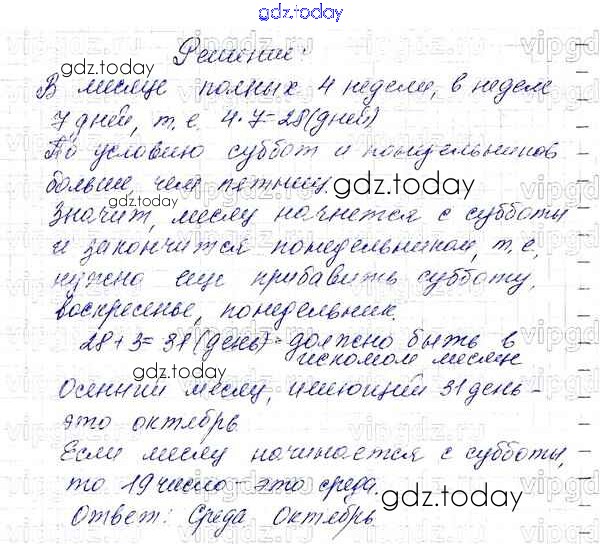 gdz.today
Решение:
gdz.today
В месяце полных 4 недели, в неделе
7 дней, т.е. 4·7=28(дней)
По условию суббот и понедельников
больше, чем пятниц.
gdz.today
Значит, месяц начнется с субботы
и закончится понедельником, т.е.
нужно еще прибавить субботу,
воскресенье, понедельник.
28+3=31(день)-должно быть в
искомом месяце
gdz.today
Осенний месяц, имеющий 31 день -
это октябрь
Если месяц начинается с субботы,
то 19 число - это среда.
gdz.today
Ответ: Среда октябрь